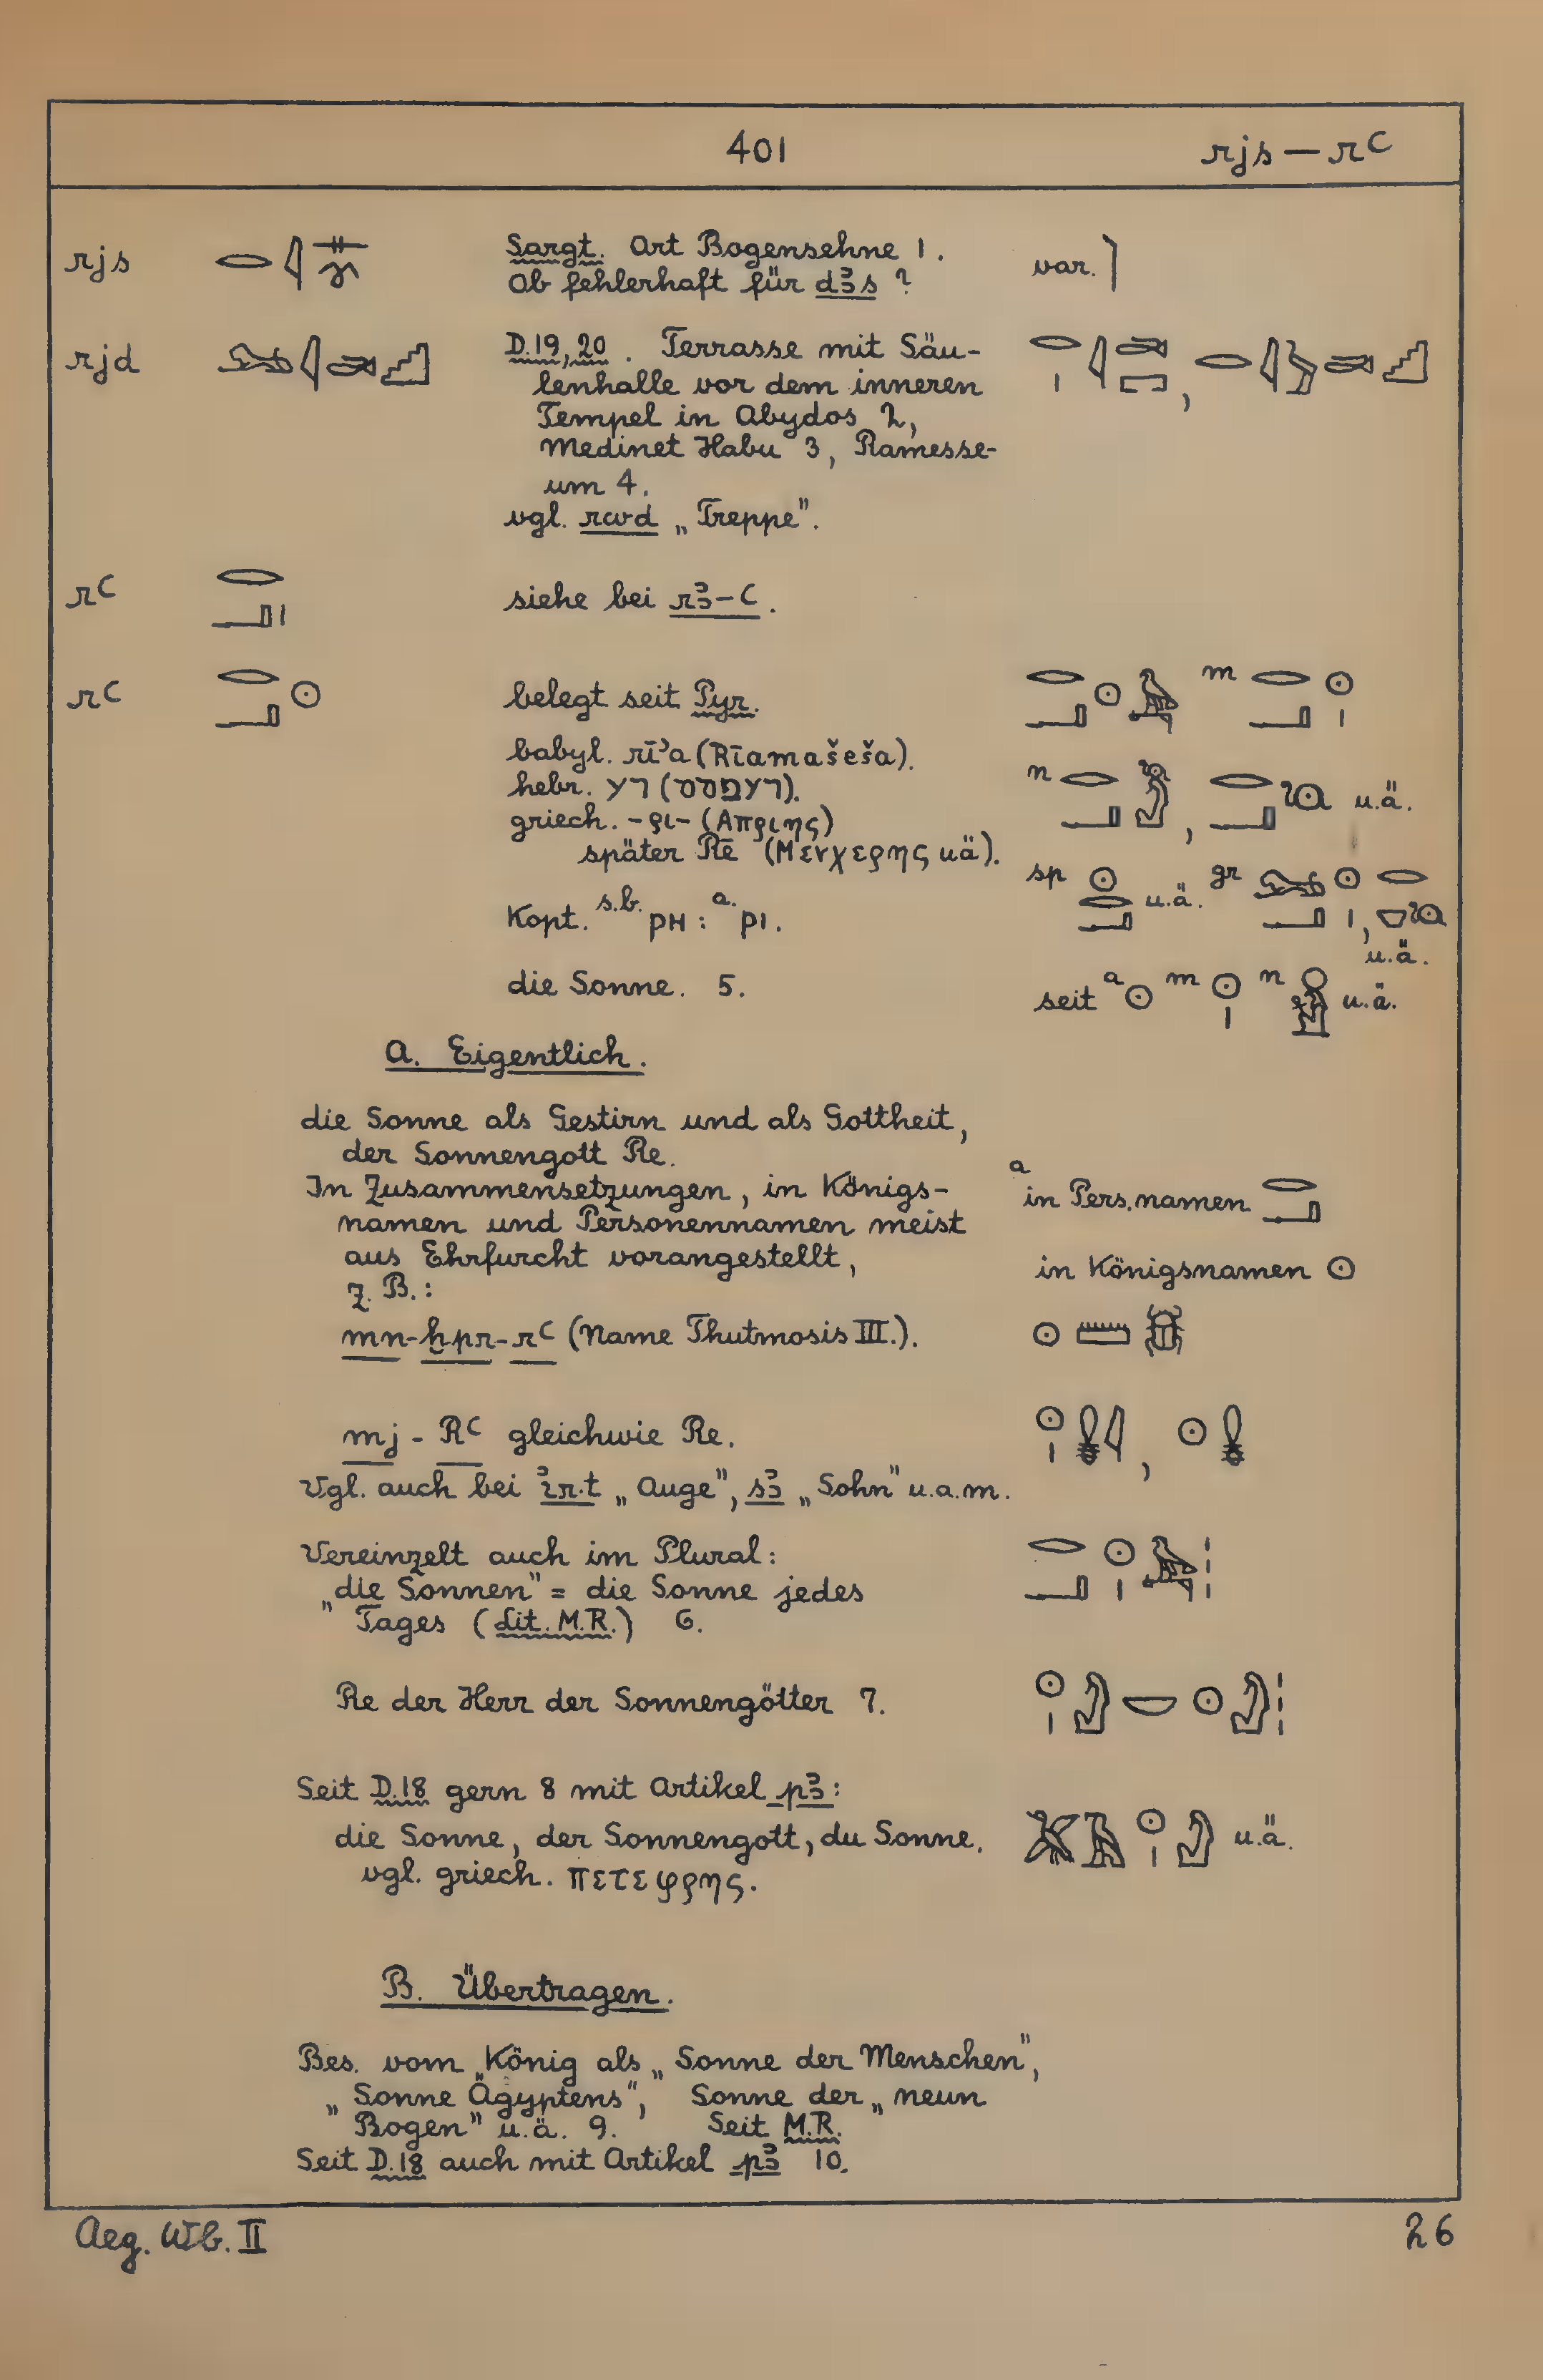 401 rjs — rꜥ
rjs 𓂋𓇋𓊃 Sargt. Art Bogensehne 1. var.
Ob fehlerhaft für dꜣs ?
rjd D.19,20. Terrasse mit Säu-
lenhalle vor dem inneren
Tempel in Abydos 2,
Medinet Habu 3, Ramesse-
um 4.
vgl. rwd „Treppe".
rꜥ 𓂋𓂝𓏤 siehe bei rꜣ-ꜥ.
rꜥ 𓂋𓂝𓇳 belegt seit Pyr. m 𓂋𓂝𓇳𓏤
babyl. rīʾa (Rīamašeša).
hebr. רע (רעמסס). n u.ä.
griech. -ρι- (Απριης)
später Rē (Μενχερης uä).
sp 𓇳𓂋𓂝 u.ä. gr u.ä.
Kopt. s.b. ⲣⲏ : a. ⲣⲓ.
die Sonne. 5. seit a 𓇳 m 𓇳𓏤 n u.ä.
A. Eigentlich.
die Sonne als Gestirn und als Gottheit,
der Sonnengott Re.
In Zusammensetzungen, in Königs- a in Pers.namen 𓂋𓂝
namen und Personennamen meist
aus Ehrfurcht vorangestellt, in Königsnamen 𓇳
z. B.:
mn-ḫpr-rꜥ (Name Thutmosis III.). 𓇳𓏠𓆣
mj - Rꜥ gleichwie Re. 𓇳𓏤𓏇𓇋, 𓇳𓏇
Vgl. auch bei ꞽr.t „Auge", sꜣ „Sohn" u.a.m.
Vereinzelt auch im Plural:
„die Sonnen" = die Sonne jedes
Tages (Lit. M.R.) 6.
Re der Herr der Sonnengötter 7. 𓇳𓏤𓀭𓎟𓇳𓀭𓏪
Seit D.18 gern 8 mit Artikel pꜣ:
die Sonne, der Sonnengott, du Sonne. 𓅮𓄿𓇳𓏤𓀭 u.ä.
vgl. griech. πετεφρης.
B. Übertragen.
Bes. vom König als „Sonne der Menschen",
„Sonne Ägyptens", „Sonne der neun
Bogen" u.ä. 9. Seit M.R.
Seit D.18 auch mit Artikel pꜣ 10.
Aeg. Wb. II 26